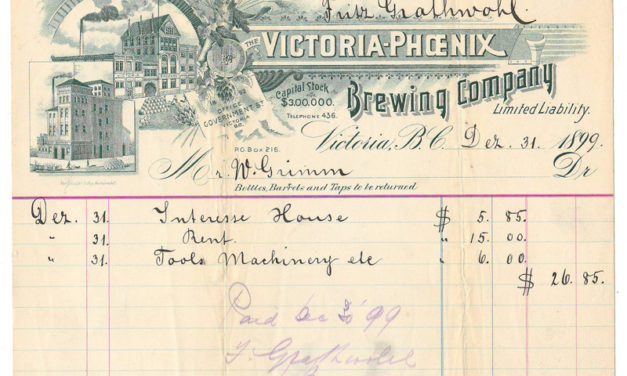 Fritz Grathwohl.
THE VICTORIA-PHŒNIX
Brewing Company
Limited Liability.
Capital Stock
$300.000.
TELEPHONE 436.
OFFICE
GOVERNMENT ST
VICTORIA
B.C.
P.O. Box 215.
Victoria, B.C. Dez. 31. 1899.
Mr. W. Grimm Dr
Bottles, Barrels and Taps to be returned
Dez. 31. Interesse House $ 5. 85.
" 31. Rent. " 15. 00.
" 31. Tools Machinery etc " 6. 00.
$ 26. 85.
Paid Dec 30 '99
F. Grathwohl